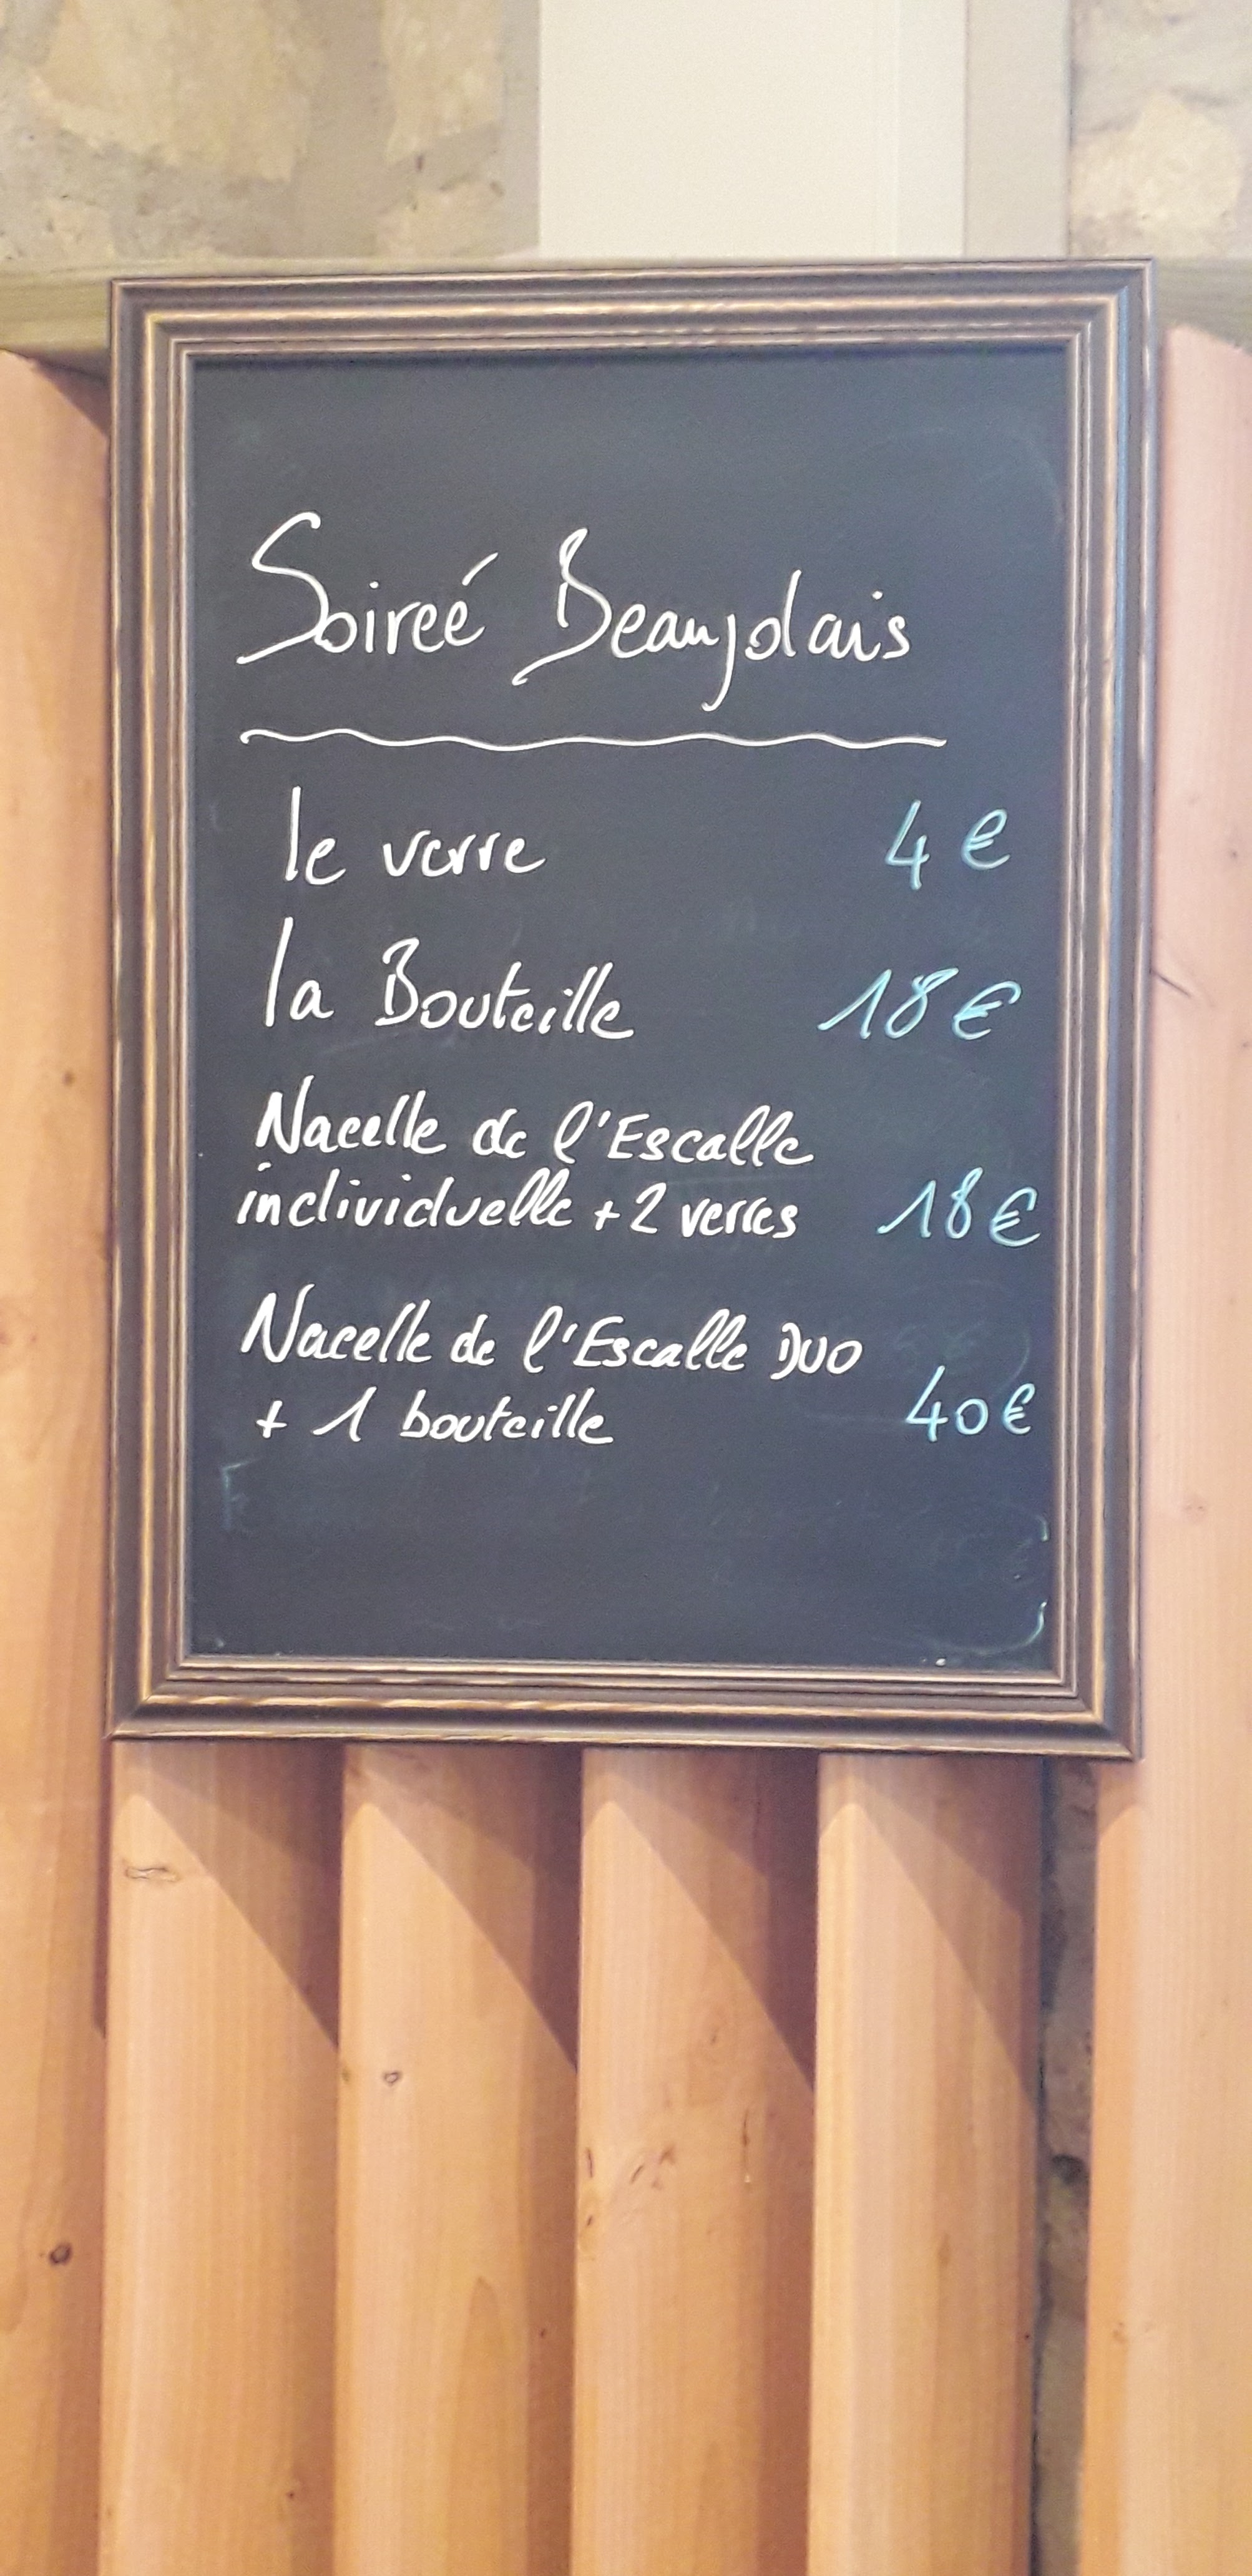 Soireé Beaujolais
le verre 4 €
la Bouteille 18 €
Nacelle de l'Escalle
individuelle + 2 verres 18 €
Nacelle de l'Escalle DUO
+ 1 bouteille 40 €